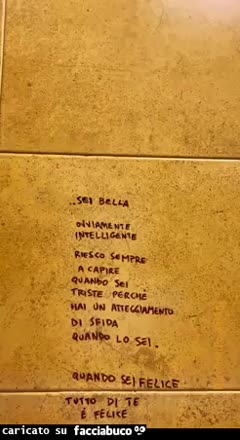 ..SEI BELLA
OVVIAMENTE
INTELLIGENTE
RIESCO SEMPRE
A CAPIRE
QUANDO SEI
TRISTE PERCHE
HAI UN ATTEGGIAMENTO
DI SFIDA
QUANDO LO SEI.
QUANDO SEI FELICE
TUTTO DI TE
È FELICE
caricato su facciabuco